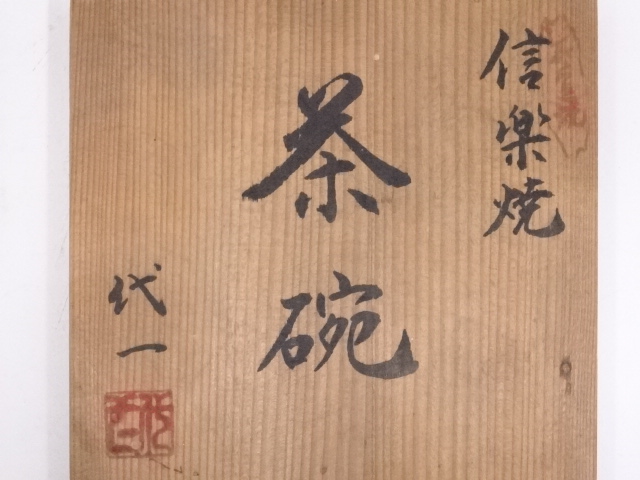 信楽焼
茶碗
代一